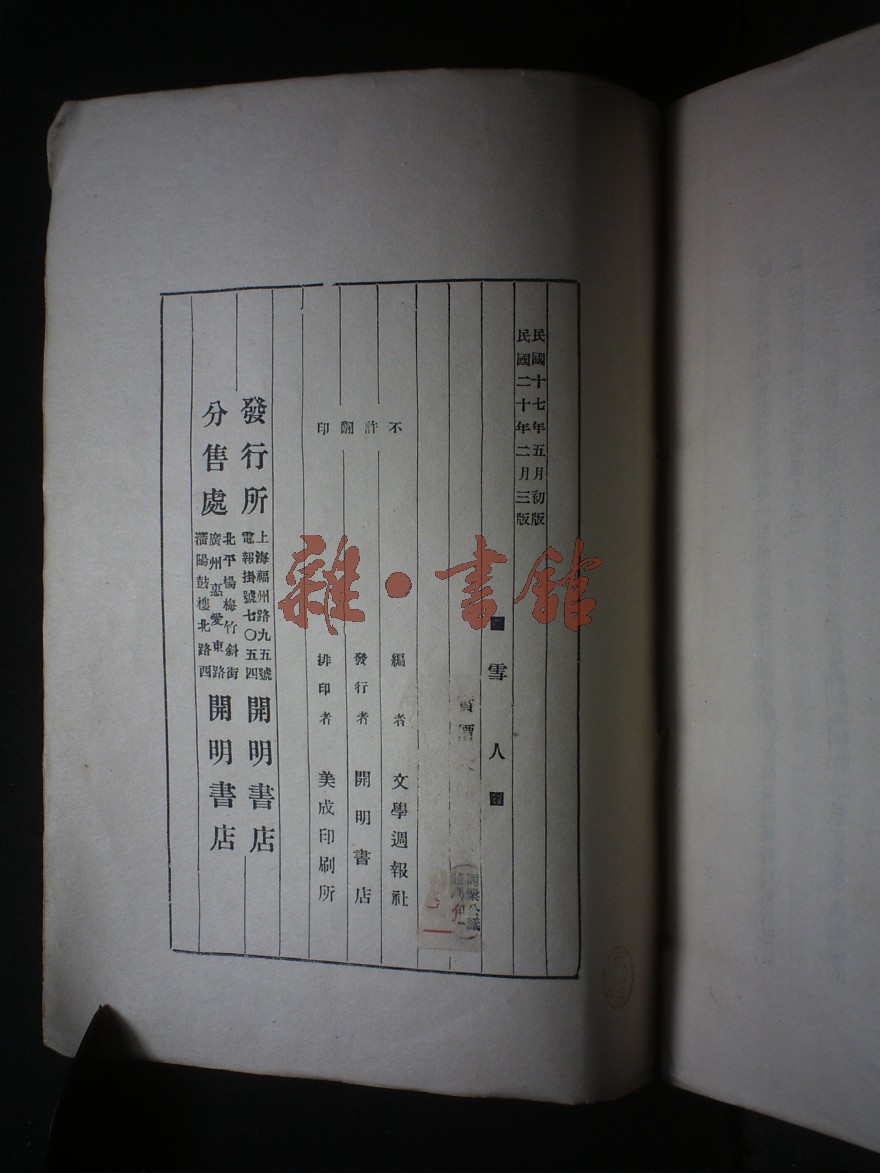 民國十七年五月初版
民國二十年二月三版
雪人
實價
編者 文學週報社
發行者 開明書店
排印者 美成印刷所
不許翻印
發行所 上海福州路九五號 電報掛號七〇五四 開明書店
分售處 北平楊梅竹斜街 廣州惠愛東路 瀋陽鼓樓北路西 開明書店
雜·書館